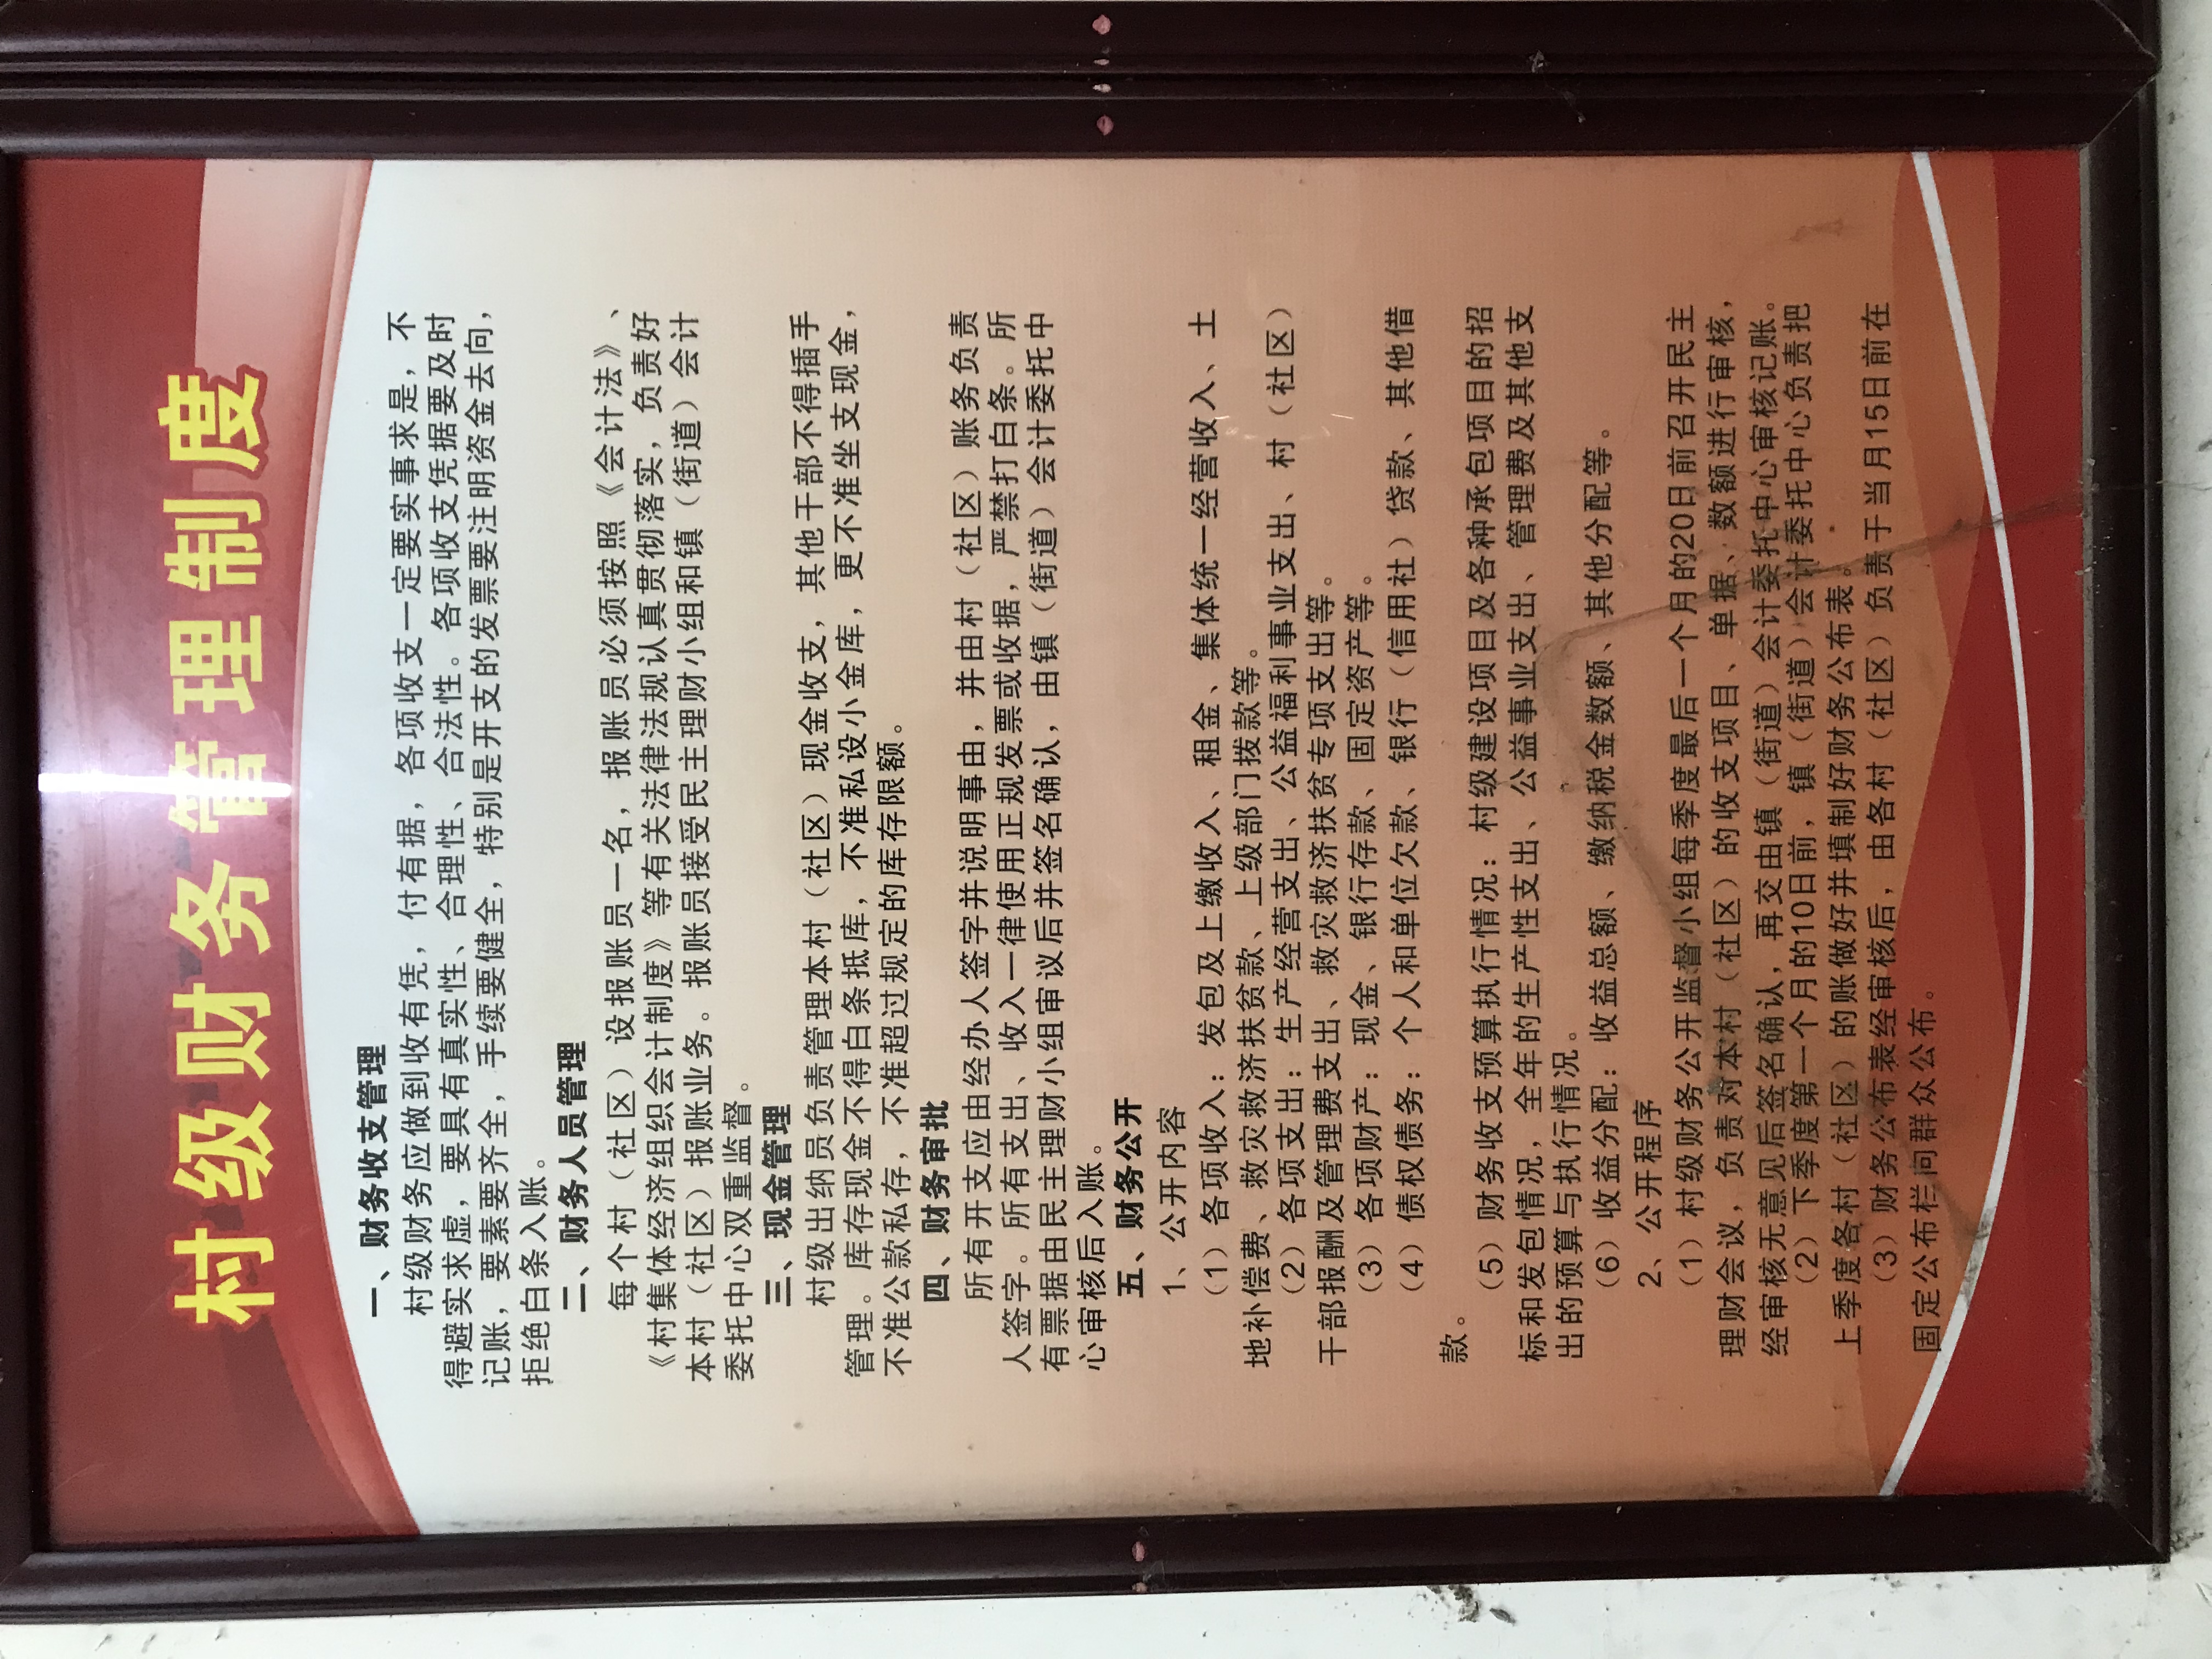 村级财务管理制度
一、财务收支管理
村级财务应做到收有凭，付有据，各项收支一定要实事求是，不
得避实求虚，要具有真实性、合理性、合法性。各项收支凭据要及时
记账，要素要齐全，手续要健全，特别是开支的发票要注明资金去向，
拒绝白条入账。
二、财务人员管理
每个村（社区）设报账员一名，报账员必须按照《会计法》、
《村集体经济组织会计制度》等有关法律法规认真贯彻落实，负责好
本村（社区）报账业务。报账员接受民主理财小组和镇（街道）会计
委托中心双重监督。
三、现金管理
村级出纳员负责管理本村（社区）现金收支，其他干部不得插手
管理。库存现金不得白条抵库，不准私设小金库，更不准坐支现金，
不准公款私存，不准超过规定的库存限额。
四、财务审批
所有开支应由经办人签字并说明事由，并由村（社区）账务负责
人签字。所有支出、收入一律使用正规发票或收据，严禁打白条。所
有票据由民主理财小组审议后并签名确认，由镇（街道）会计委托中
心审核后入账。
五、财务公开
1、公开内容
（1）各项收入：发包及上缴收入、租金、集体统一经营收入、土
地补偿费、救灾救济扶贫款、上级部门拨款等。
（2）各项支出：生产经营支出、公益福利事业支出、村（社区）
干部报酬及管理费支出、救灾救济扶贫专项支出等。
（3）各项财产：现金、银行存款、固定资产等。
（4）债权债务：个人和单位欠款、银行（信用社）贷款、其他借
款。
（5）财务收支预算执行情况：村级建设项目及各种承包项目的招
标和发包情况，全年的生产性支出、公益事业支出、管理费及其他支
出的预算与执行情况。
（6）收益分配：收益总额、缴纳税金数额、其他分配等。
2、公开程序
（1）村级财务公开监督小组每季度最后一个月的20日前召开民主
理财会议，负责对本村（社区）的收支项目、单据、数额进行审核，
经审核无意见后签名确认，再交由镇（街道）会计委托中心审核记账。
（2）下季度第一个月的10日前，镇（街道）会计委托中心负责把
上季度各村（社区）的账做好并填制好财务公布表。
（3）财务公布表经审核后，由各村（社区）负责于当月15日前在
固定公布栏向群众公布。